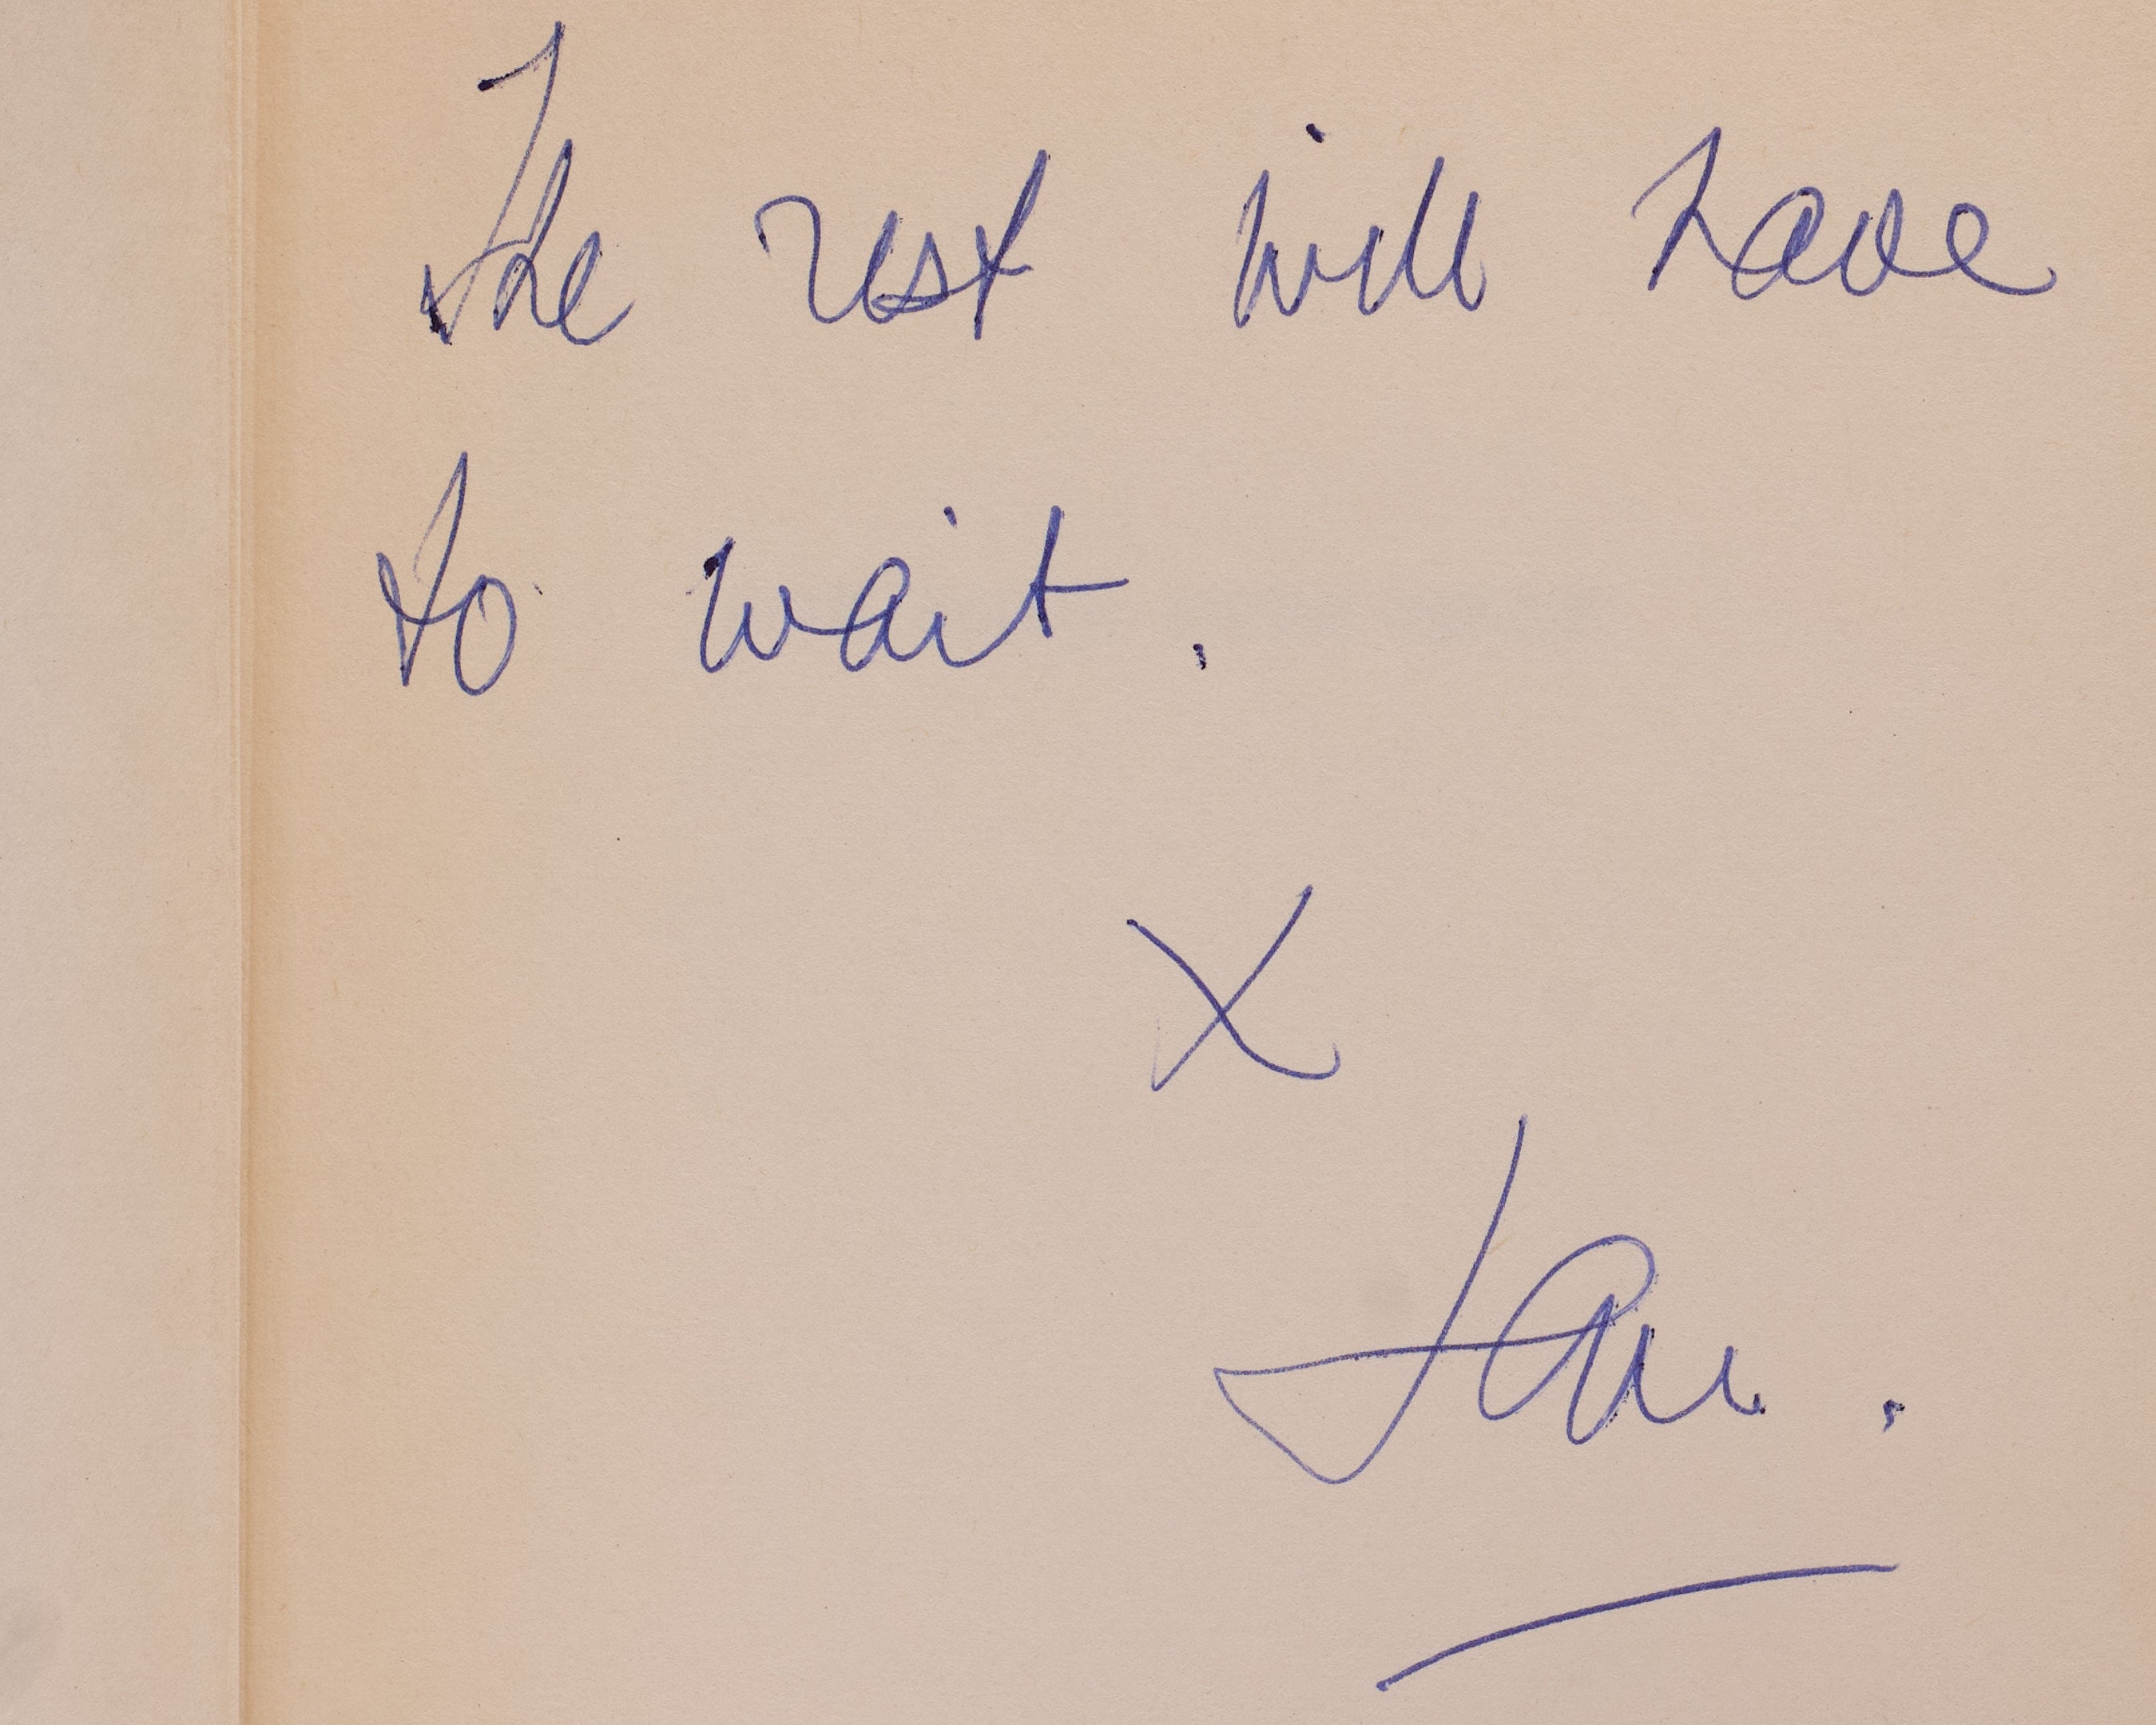 The rest will have
to wait.
x
Jan.